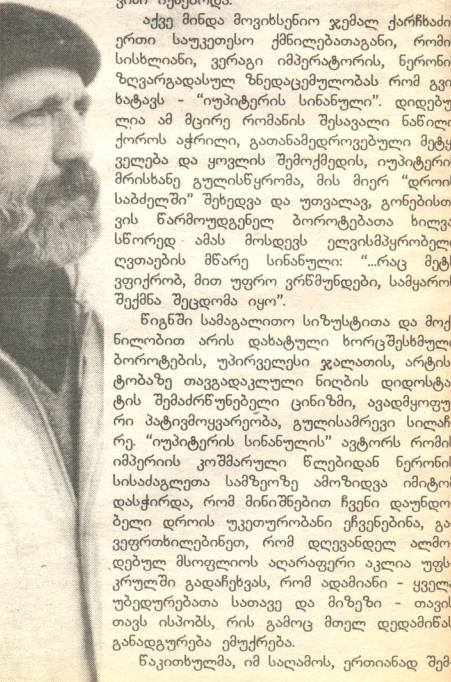 აქვე მინდა მოვიხსენიო ჯემალ ქარჩხაძი
ერთი საუკეთესო ქმნილებათაგანი, რომი
სისხლიანი, ვერაგი იმპერატორის, ნერონი
ზღვარგადასულ ზნედაცემულობას რომ გვი
ხატავს - “იუპიტერის სინანული”. დიდებუ
ლია ამ მცირე რომანის შესავალი ნაწილი
ქოროს აჭრილი, გათანამედროვებული მეტყ
ველება და ყოვლის შემოქმედის, იუპიტერი
მრისხანე გულისწყრომა, მის მიერ “დროის
საბძელში” შეხედვა და უთვალავ, გონებისთ
ვის წარმოუდგენელ ბოროტებათა ხილვა
სწორედ ამას მოსდევს ელვისმპყრობელ
ღვთაების მწარე სინანული: “...რაც მეტს
ვფიქრობ, მით უფრო ვრწმუნდები, სამყარო
შექმნა შეცდომა იყო”.
წიგნში სამაგალითო სიზუსტითა და მოქ
ნილობით არის დახატული ხორცშესხმული
ბოროტების, უპირველესი ჯალათის, არტის
ტობაზე თავგადაკლული ნიღბის დიდოსტა
ტის შემაძრწუნებელი ცინიზმი, ავადმყოფუ
რი პატივმოყვარეობა, გულისამრევი სილაჩ
რე. “იუპიტერის სინანულის” ავტორს რომის
იმპერიის კოშმარული წლებიდან ნერონის
სისაძაგლეთა სამზეოზე ამოზიდვა იმიტომ
დასჭირდა, რომ მინიშნებით ჩვენი დაუნდო
ბელი დროის უკეთურობანი ეჩვენებინა, გა
ვეფრთხილებინეთ, რომ დღევანდელ ალმო
დებულ მსოფლიოს აღარაფერი აკლია უფს
კრულში გადაჩეხვას, რომ ადამიანი - ყველ
უბედურებათა სათავე და მიზეზი - თავის
თავს ისპობს, რის გამოც მთელ დედამიწას
განადგურება ემუქრება.
წაკითხულმა, იმ საღამოს, ერთიანად შემ-